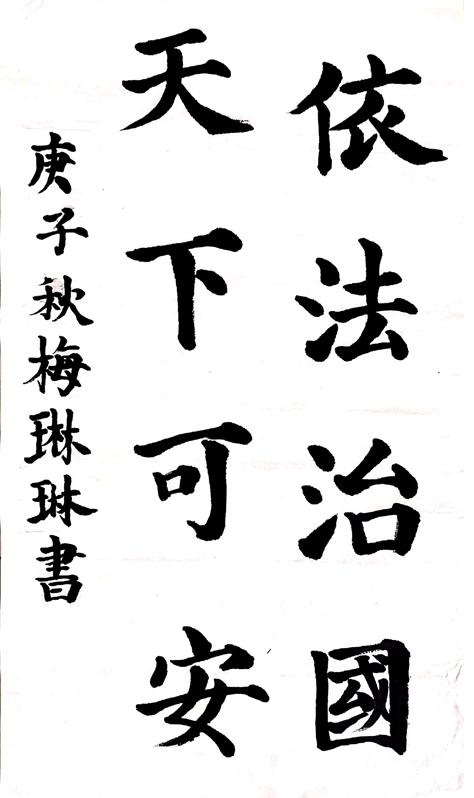 依法治國
天下可安
庚子秋梅琳琳書